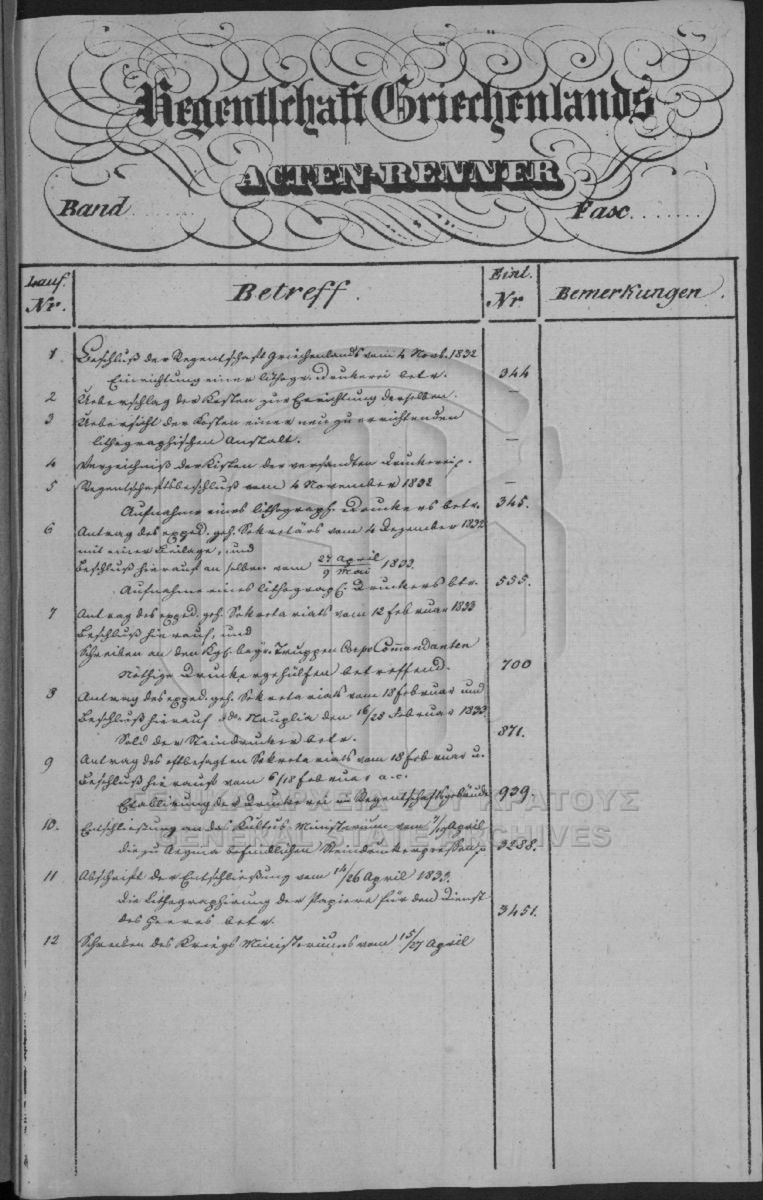 Regentschaft Griechenlands
ACTEN-RENNER
Band ........ Fasc ........
Lauf. Nr. Betreff. Einl. Nr. Bemerkungen.
1. Beschluß der Regentschaft Griechenlands vom 4 Novb. 1832
Einrichtung einer lithogr. Drukerei betr. 344
2 Ueberschlag der Kosten zur Errichtung derselben. —
3 Uebersicht der Kosten einer neu zu errichtenden
lithographischen Anstalt. —
4 Verzeichniß der Kisten der versandten Druckerei. —
5 Regentschaftsbeschluß vom 4 November 1832
Aufnahme eines lithograph. Druckers betr. 345.
6 Antrag des exped. geh. Sekretärs vom 4 Dezember 1832
mit einer Beilage, und
Beschluß hierauf an selben vom 27 April / 9 Mai 1833.
Aufnahme eines lithograph. Druckers btr. 555.
7 Antrag des exped. geh. Sekretariats vom 12 Februar 1833
Beschluß hierauf, und
Schreiben an den Kgl. bayr. Truppen Corps Commandanten
Nöthige Druckergehülfen betreffend. 700
8 Antrag des exped. geh. Sekretariats vom 18 Februar und
Beschluß hierauf dd. Nauplia den 16/28 Februar 1833
Sold der Steindrucker betr. 871.
9 Antrag des oftbesagten Sekretariats vom 18 Februar u.
Beschluß hierauf vom 6/18 Februar a.c.
Etablirung der Druckerei im Regentschaftsgebäude 939.
10. Entschließung an das Kultus Ministerium vom 7/19 April
die zu Aegina befindlichen Steindruckerpressen 3288.
11 Abschrift der Entschließung vom 14/26 April 1833.
die Lithographirung der Papiere für den Dienst
des Heeres betr. 3451.
12 Schreiben des Kriegs Ministeriums vom 15/27 April
ΓΕΝΙΚΑ ΑΡΧΕΙΑ ΤΟΥ ΚΡΑΤΟΥΣ
GENERAL STATE ARCHIVES